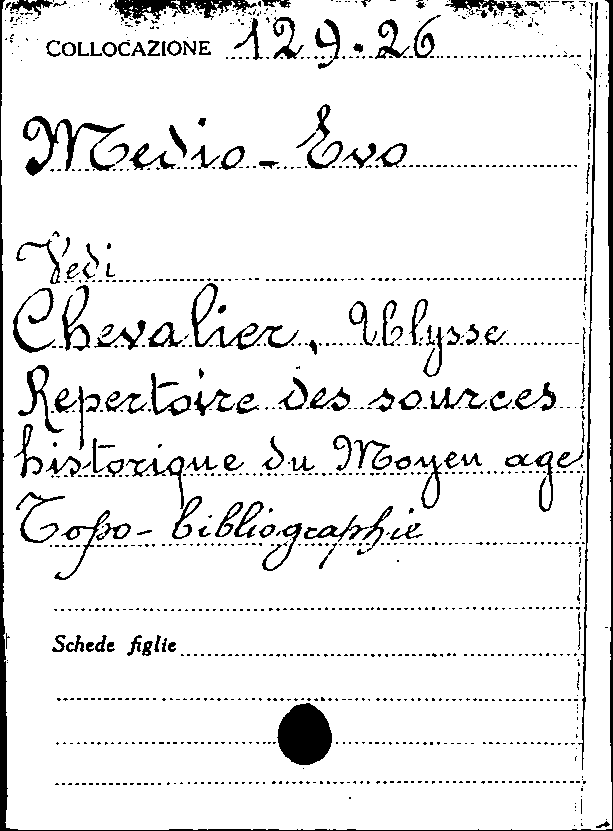 COLLOCAZIONE 129.26
Medio-Evo
Vedi
Chevalier, Ulysse
Repertoire des sources
historique du Moyen age
Topo-bibliographie
Schede figlie